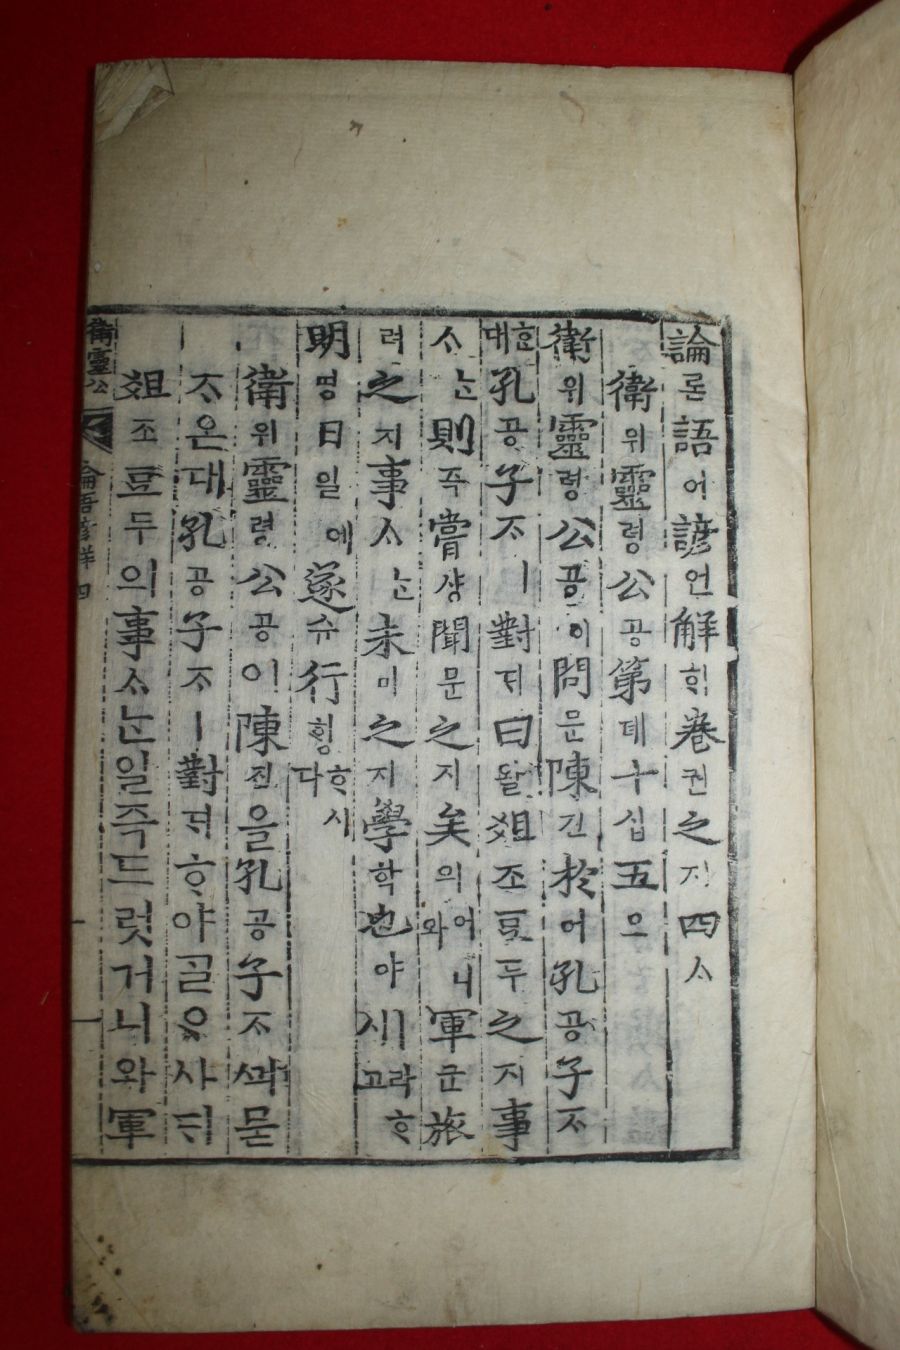 論론語어諺언解ᄒᆡ卷권之지四ᄉᆞ
衛위靈령公공第뎨十십五오
衛위靈령公공이問문陳진於어孔공子ᄌᆞ
ᄒᆞᆫ대孔공子ᄌᆞㅣ對ᄃᆡ曰왈俎조豆두之지事
ᄉᆞᄂᆞᆫ則즉嘗샹聞문之지矣의어니와軍군旅
려之지事ᄉᆞᄂᆞᆫ未미之지學ᄒᆞᆨ也야ㅣ라ᄒᆞ시고
明명日일에遂슈行ᄒᆡᆼᄒᆞ시다
衛위靈령公공이陳진을孔공子ᄌᆞᄭᅴ묻
ᄌᆞ온대孔공子ᄌᆞㅣ對ᄃᆡᄒᆞ야ᄀᆞᆯᄋᆞ샤ᄃᆡ
俎조豆두의事ᄉᆞᄂᆞᆫ일즉드럿거니와軍
衛靈公 論語諺解 四